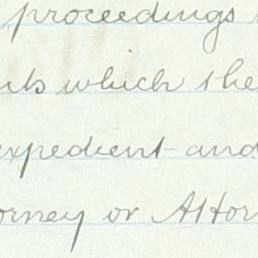 proceedings
which the
expedient and
orney or Attor